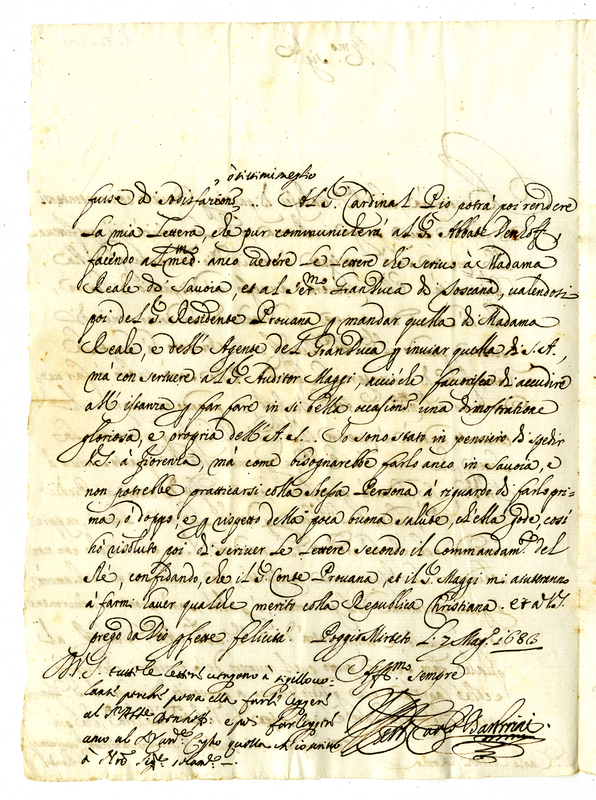 ò visitimi meglio
fusse di sodisfazione. Al S. Cardinal Pio potrà poi rendere
la mia lettera, che pur communicherà al S. Abbate Denhoff,
facendo al med.mo anco vedere le lettere che scrivo à Madama
Reale di Savoia, et al Ser.mo Gran Duca di Toscana, valendosi
poi del S. Residente Provana p mandar quella di Madama
Reale, e dell' Agente del Gran Duca p inviar quella di S. A.,
mà con scrivere al S. Auditor Maggi, acciò che favorisca di accudire
all' istanza p far fare in si bella occasione una dimostratione
gloriosa, e propria dell' A. S. Io sono stato in pensiero di spedir
V.S. à Fiorenza, mà come bisognarebbe farlo anco in Savoia, e
non potrebbe pratticarsi colla stessa Persona à riguardo di farlo pri-
ma, ò doppo, e p rispetto della poca buona salute, ch'ella gode, così
hò risoluto poi di scriver le lettere secondo il Commandam.to del
Rè, confidando, che il S. Conte Provana, et il S. Maggi m' aiuteranno
à farmi haver qualche merito colla Republica Christiana. et a V.S.
prego da Dio pfette felicità. Poggio Mirteto li 7 Mag.o 1683
tutte le lettere vengono à sigillo vo-
Aff.mo Sempre
lante perche possa ella farle leggere
al Denhoff: e poi far leggere
anco al Card. quella ch'io scrivo
Carlo Barberini
à Nro Sig.re